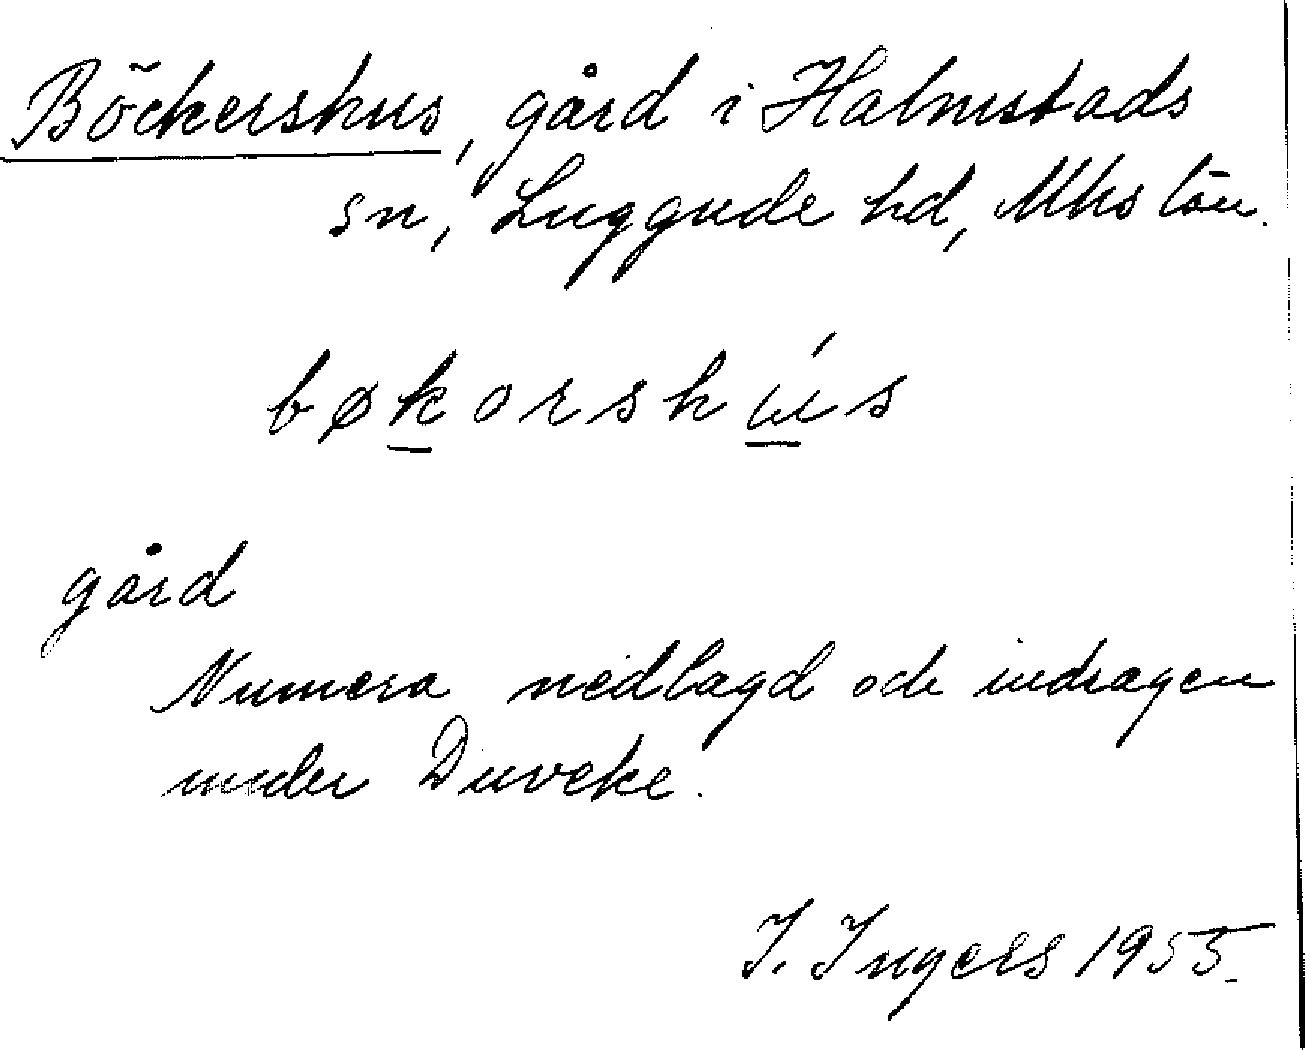 Böckershus, gård i Halmstads
sn, Luggude hd, Mhs län.
bøkorshús
gård
Numera nedlagd och indragen
under Duveke.
I. Ingers 1955.